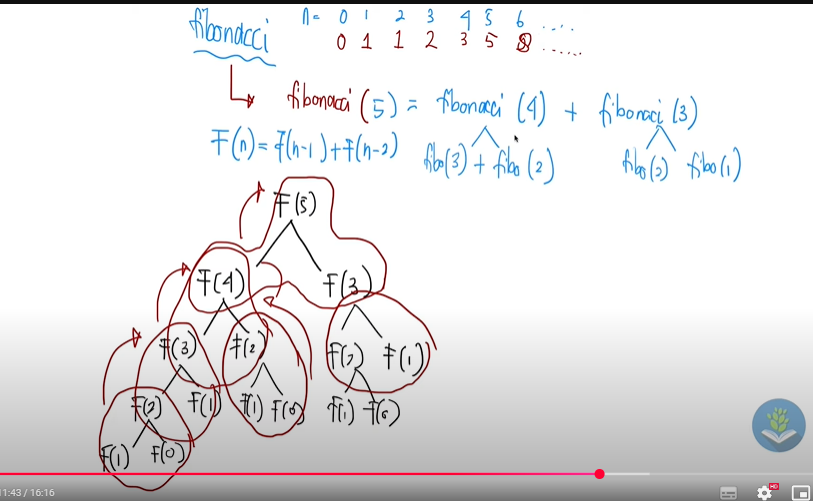 fibonacci n= 0 1 2 3 4 5 6 ....
0 1 1 2 3 5 8 .....
fibonacci (5) = fibonacci (4) + fibonaci (3)
F(n) = f(n-1) + f(n-2) fibo(3) + fibo(2) fibo(2) fibo(1)
F(5)
F(4) F(3)
F(3) F(2) F(2) F(1)
F(2) F(1) F(1) F(0) F(1) F(0)
F(1) F(0)
11:43 / 16:16
HD